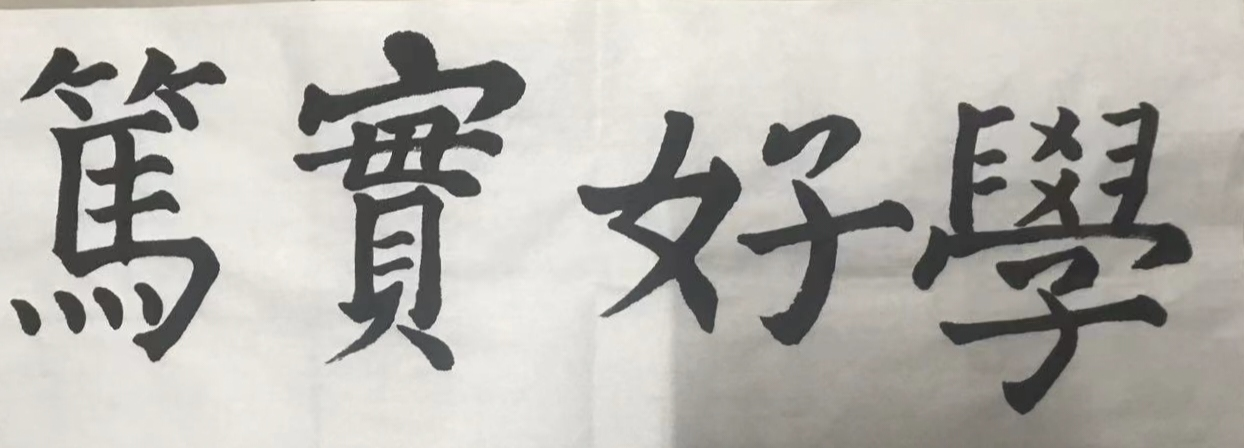 篤實好學